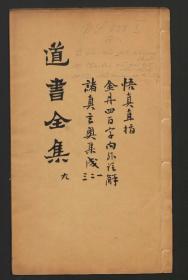 悟真直指
金丹四百字内外注解
諸真玄奧集成
一二三
道書全集
九